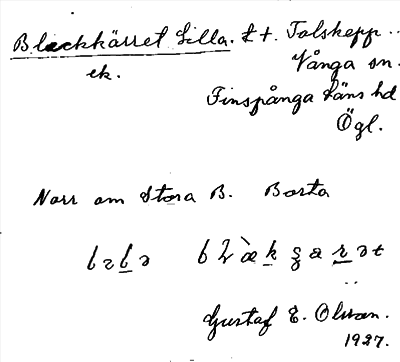 Bleckkärret Lilla. t. Tolskepp
ek. Vånga sn.
Finspånga läns hd
Ögl.
Norr om Stora B. Borta
Gustaf E. Olsson.
1927.